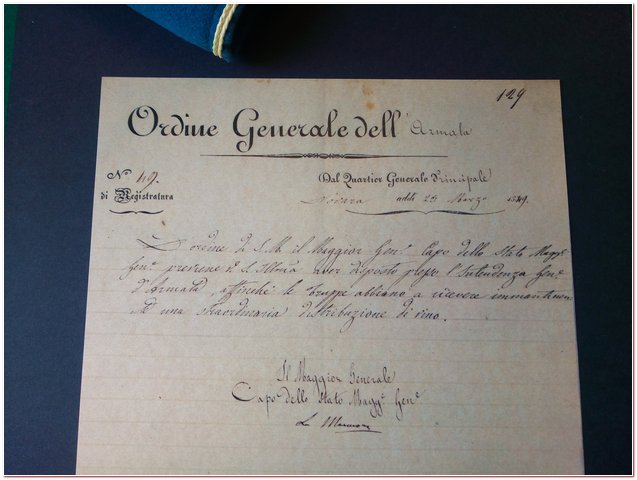 129
Ordine Generale dell'Armata
N.º 49.
di Registratura
Dal Quartier Generale Principale
Novara addì 23 Marzo 1849.
D'ordine di S. M. il Maggior Gen.e Capo dello Stato Magg.e
Gen.e previene S. Ill.ma aver disposto presso l'Intendenza Gen.e
d'Armata, affinchè le truppe abbiano a ricevere immantinen
te una straordinaria distribuzione di vino.
Il Maggior Generale
Capo dello Stato Magg.e Gen.e
La Marmora